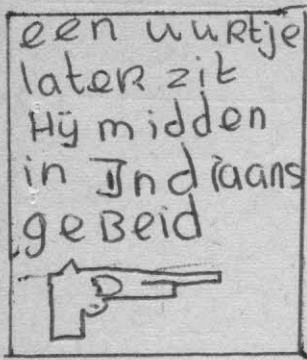 een uurtje
later zit
Hij midden
in Indiaans
geBeid